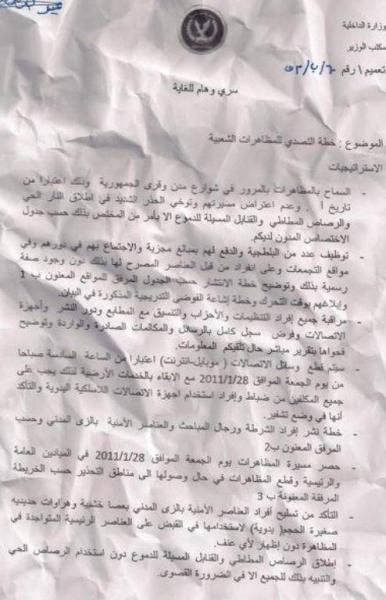 وزارة الداخلية
مكتب الوزير
تعميم \ رقم
سري وهام للغاية
الموضوع : خطة التصدي للمظاهرات الشعبية
الاستراتيجيات
- السماح بالمظاهرات بالمرور في شوارع مدن وقرى الجمهورية وذلك اعتبارا من
تاريخ وعدم اعتراض مسيرتهم وتوخي الحذر الشديد في اطلاق النار الحي
والرصاص المطاطي والقنابل المسيلة للدموع الا بأمر من المختص بذلك حسب جدول
الاختصاص المدون لديكم.
- توظيف عدد من البلطجية والدفع لهم بمبالغ مجزية والاجتماع بهم في دورهم وفي
مواقع التجمعات وعلى انفراد من قبل العناصر المصرح لها بذلك دون وجود صفة
رسمية بذلك وتوضيح خطة الانتشار حسب الجدول المرفق للمواقع المعنون ب 1
وإبلاغهم بوقت التحرك وخطة إشاعة الفوضى التدريجية المذكورة في البيان.
- مراقبة جميع إفراد التنظيمات والأحزاب والتنسيق مع المطابع ودور النشر وأجهزة
الاتصالات وفرض سجل كامل بالرسائل والمكالمات الصادرة والواردة وتوضيح
فحواها بتقرير مباشر حال تلقيكم المعلومات.
- سيتم قطع وسائل الاتصالات ( موبايل-انترنت) اعتبارا من الساعة السادسة صباحا
من يوم الجمعة الموافق 2011/1/28 مع الإبقاء بالخدمات الأرضية لذلك يجب على
جميع المكلفين من ضباط وإفراد استخدام اجهزة الاتصالات اللاسلكية اليدوية والتأكد
أنها في وضع تشفير.
- خطة نشر إفراد الشرطة ورجال المباحث والعناصر الأمنية بالزى المدني وحسب
المرفق المعنون ب2
- حصر مسيرة المظاهرات يوم الجمعة الموافق 2011/1/28 في الميادين العامة
والرئيسية وقطع المظاهرات في حال وصولها الى مناطق التحذير حسب الخريطة
المرفقة المعنونة ب 3
- التأكد من تسليح أفراد العناصر الأمنية بالزى المدني بعصا خشبية وهراوات حديديه
صغيرة الحجم( يدوية) لاستخدامها في القبض على العناصر الرئيسية المتواجدة في
المظاهرة دون إظهار لأي عنف.
- اطلاق الرصاص المطاطي والقنابل المسيلة للدموع دون استخدام الرصاص الحي
والتنبيه بذلك للجميع الا في الضرورة القصوى.